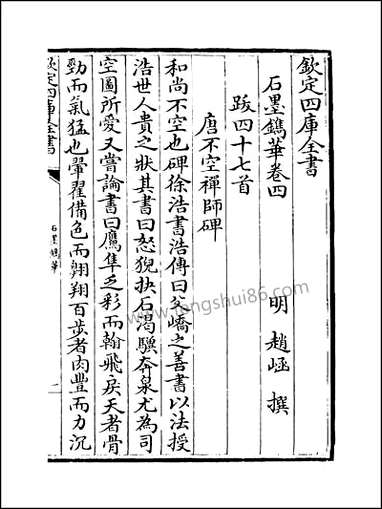 欽定四庫全書
石墨鐫華卷四
明 趙崡 撰
跋四十七首
唐不空禪師碑
和尚不空也碑徐浩書浩傳曰父嶠之善書以法授
浩世人貴之狀其書曰怒猊抉石渴驥奔泉尤為司
空圖所愛又嘗論書曰鷹隼乏彩而翰飛戾天者骨
勁而氣猛也翬翟備色而翱翔百步者肉豐而力沉
欽定四庫全書
石墨鐫華
一
www.fengshui86.com